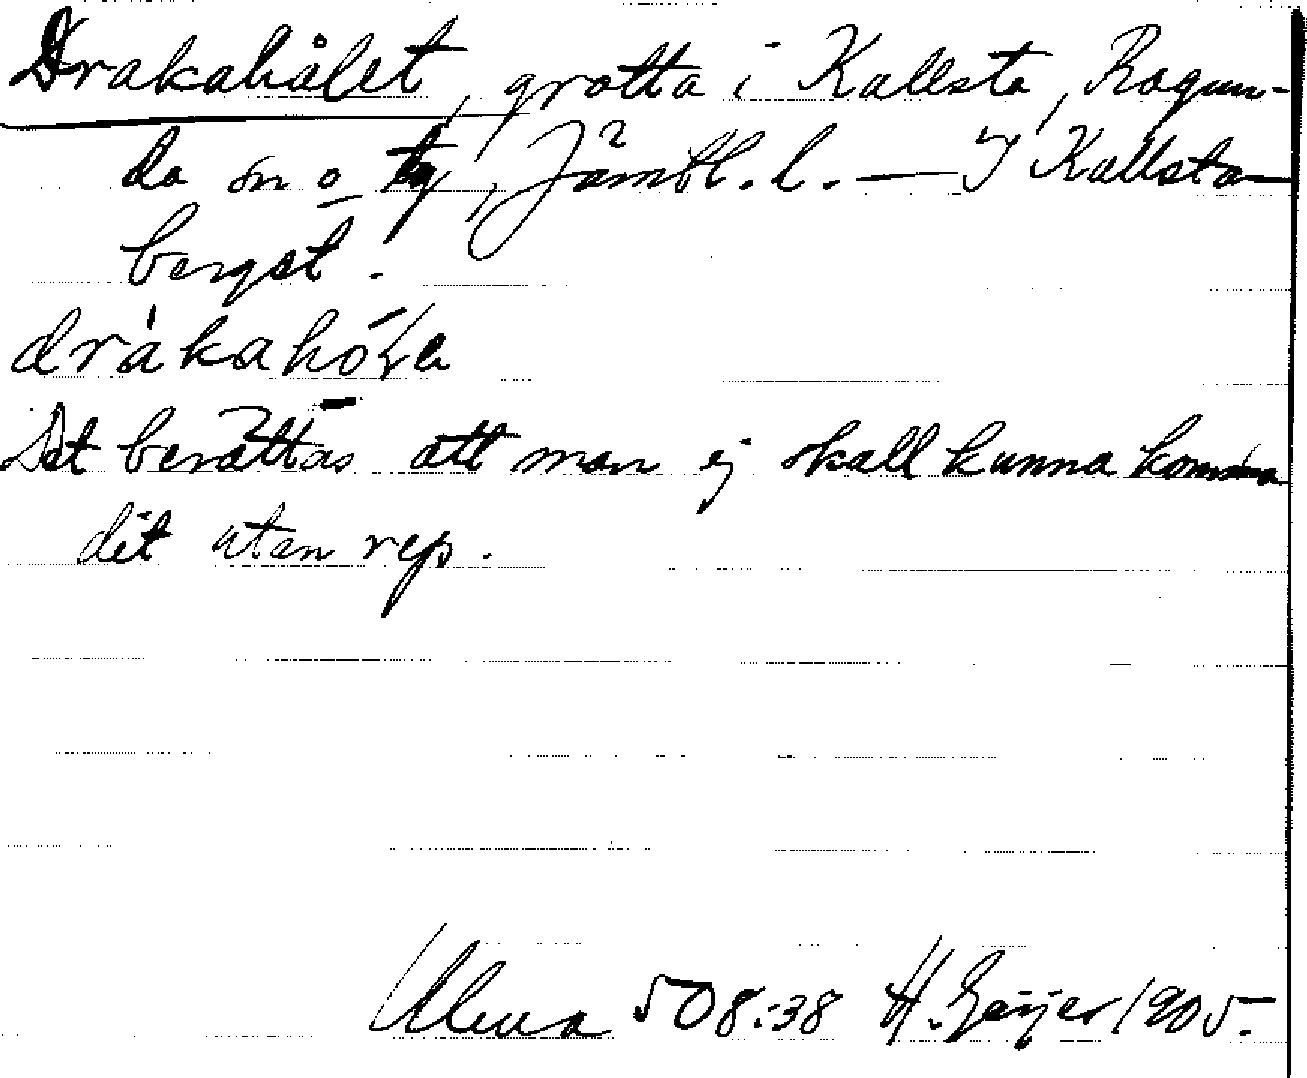 Drakahålet, grotta i Kallsta, Ragun-
da sn o tg, Jämtl. l. — I Kallsta-
berget.
drákahóła
Det berättas att man ej skall kunna komma
dit utan rep.
Ulma 508:38 H. Geijer 1905.